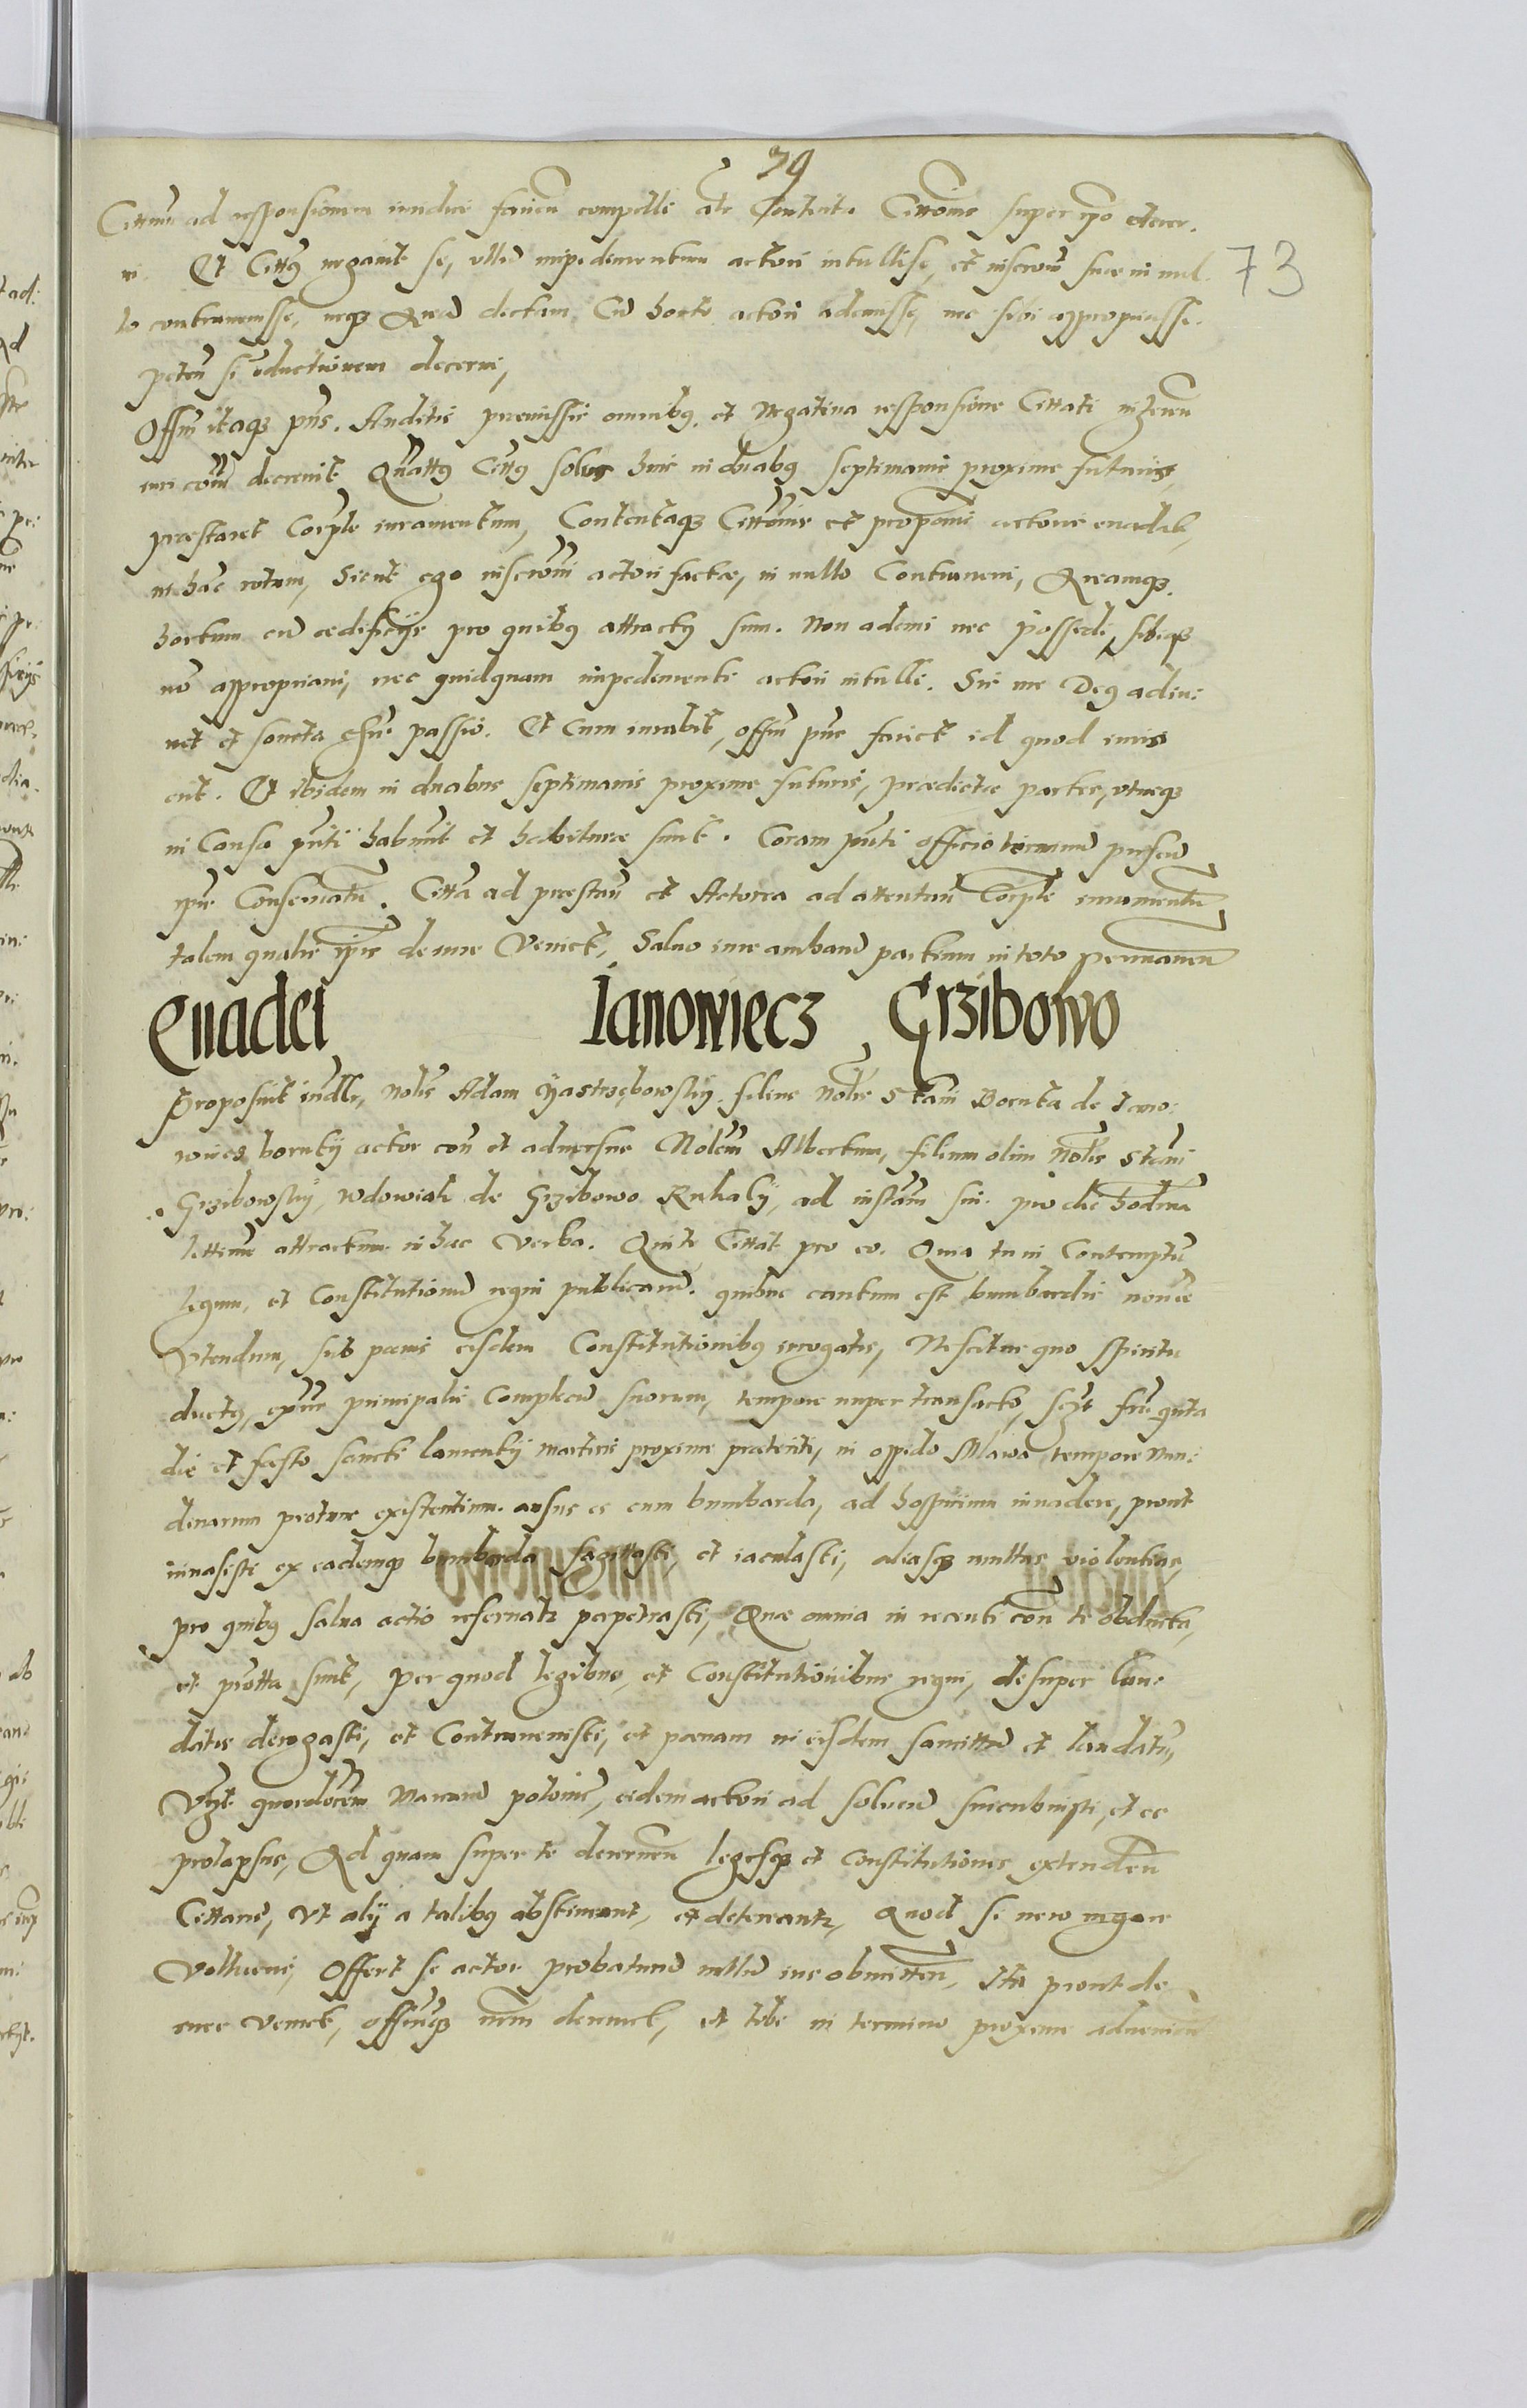 79
73
Cittum ad responsionem iudici faciem compelli ate Contenta Cittonis super ipo decer.
ni. Et Cittus negavit se, ullu impedimentum actori intullisse, et inscroni sue in nul
lo contravenisse, neqz Area dictam Cu horto actori ademisse, nec sibi appropriasse.
peten si eductionem decerni,
Offim itaqz pns. Auditis premissis omnibus, et Negativa responsione Cittati inheren
iuri coi decrevit Quattus Cittus solus hinc in duabus septimanis proxime futuris,
praestaret Corple iuramentum, Contentaqz Cittonis et proponis actoris evadat,
in hac rotam, Sicut ego inscroni actori factae, in nullo Contraveni, Areamqz
hortum cu aedificijs pro quibus attractus sum. Non ademi nec possedi, sibiqz
no appropriavi, nec quidquam impedimenti actori intulli. Sic me Deus adiu:
vet et sancta ... passio. Et Cum iurabit, offim pns faciet id quod iuris
erit. Et ibidem in duabus septimanis proxime futuris, praedictae partes, utraqz
in Causa pnti habent et habiturae sunt. Coram pnti officio terminu
ipis Conservatu. Citta ad praestan et Actorea ad attentan Corple iuramentu
talem qualis ipis de iure Veniet, Salvo iure ambaru partium in toto permanen
Evadei Ianowiecz Grzibowo
Proposuit iudlr, Nolis Adam Yastrzębowskij filius Nolis Stani Boruta de Iano:
wiecz borutij actor con et adversus Nolem Albertum, filium olim Nolis Stani
Grzibowskij, wdowiak de Grzibowo Rukalij, ad instam sui pro die hodirna
littimie attractum in haec Verba. Quite Cittat pro eo. Quia tu in Contemptu
legum, et Constitutionu regni publicaru. quibus cautum est bumbardis non ee
Utendum, sub poenis eisdem Constitutionibus irrogatis, Nescitur quo spiritu
ductus, exns principalis Complicu suorum, tempore nuper transacto, sczt fria quta
die et festo sancti laurentij martiris proxime praeteriti, in oppido Mlawa tempore Nun:
dinarum protunc existentium ausus es cum bumbarda, ad hospitium invadere, prout
invasisti ex eademqz bumbarda sagittasti, et iaculasti, aliasqz multas violentias,
pro quibus salva actio reservatr perpetrasti, Quae omnia in recenti con te obducta,
et protta sunt, Per quod legibus, et Constitutionibus regni, desuper lau:
datis derogasti, et Contravenisti, et poenam in eisdem sancittu et laudatu,
Uzt quordecem Marcaru polonic, eidem actori ad solven succubuisti, et es
prolapsus, Ad quam super te decernen legesqz et Constitutiones extenden
Cittaris, Ut alij a talibus abstineant, et deterreantr, Quod si vero negare
Vollueris, Offert se actor probaturu nullu ius obmitten, Ita prout de
iure veniet, offimqz nrm decernet, et tibi in termino proxime advenien